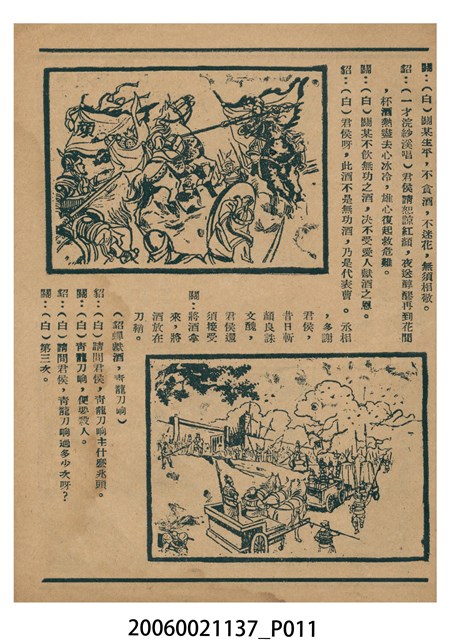 關：(白)關某生平，不貪酒，不迷花，無須相敬。
貂：(一才浣紗溪唱)君侯請恕諒紅顏，夜送醇醪再到花間
，杯酒熱盡去心冰冷，雄心復起救危難。
關：(白)關某不飲無功之酒，决不受愛人獻酒之恩。
貂：(白)君侯呀，此酒不是無功酒，乃是代表曹丞相
，多謝
君侯，
昔日斬
顏良誅
文醜，
君侯還
須接受
關：將酒拿
來，將
酒放在
刀鞘。
(貂蟬獻酒，青龍刀响)
貂：(白)請問君侯，青龍刀响主什麽兆頭。
關：(白)青龍刀响，便要殺人。
貂：(白)請問君侯，青龍刀响過多少次呀？
關：(白)第三次。
20060021137_P011